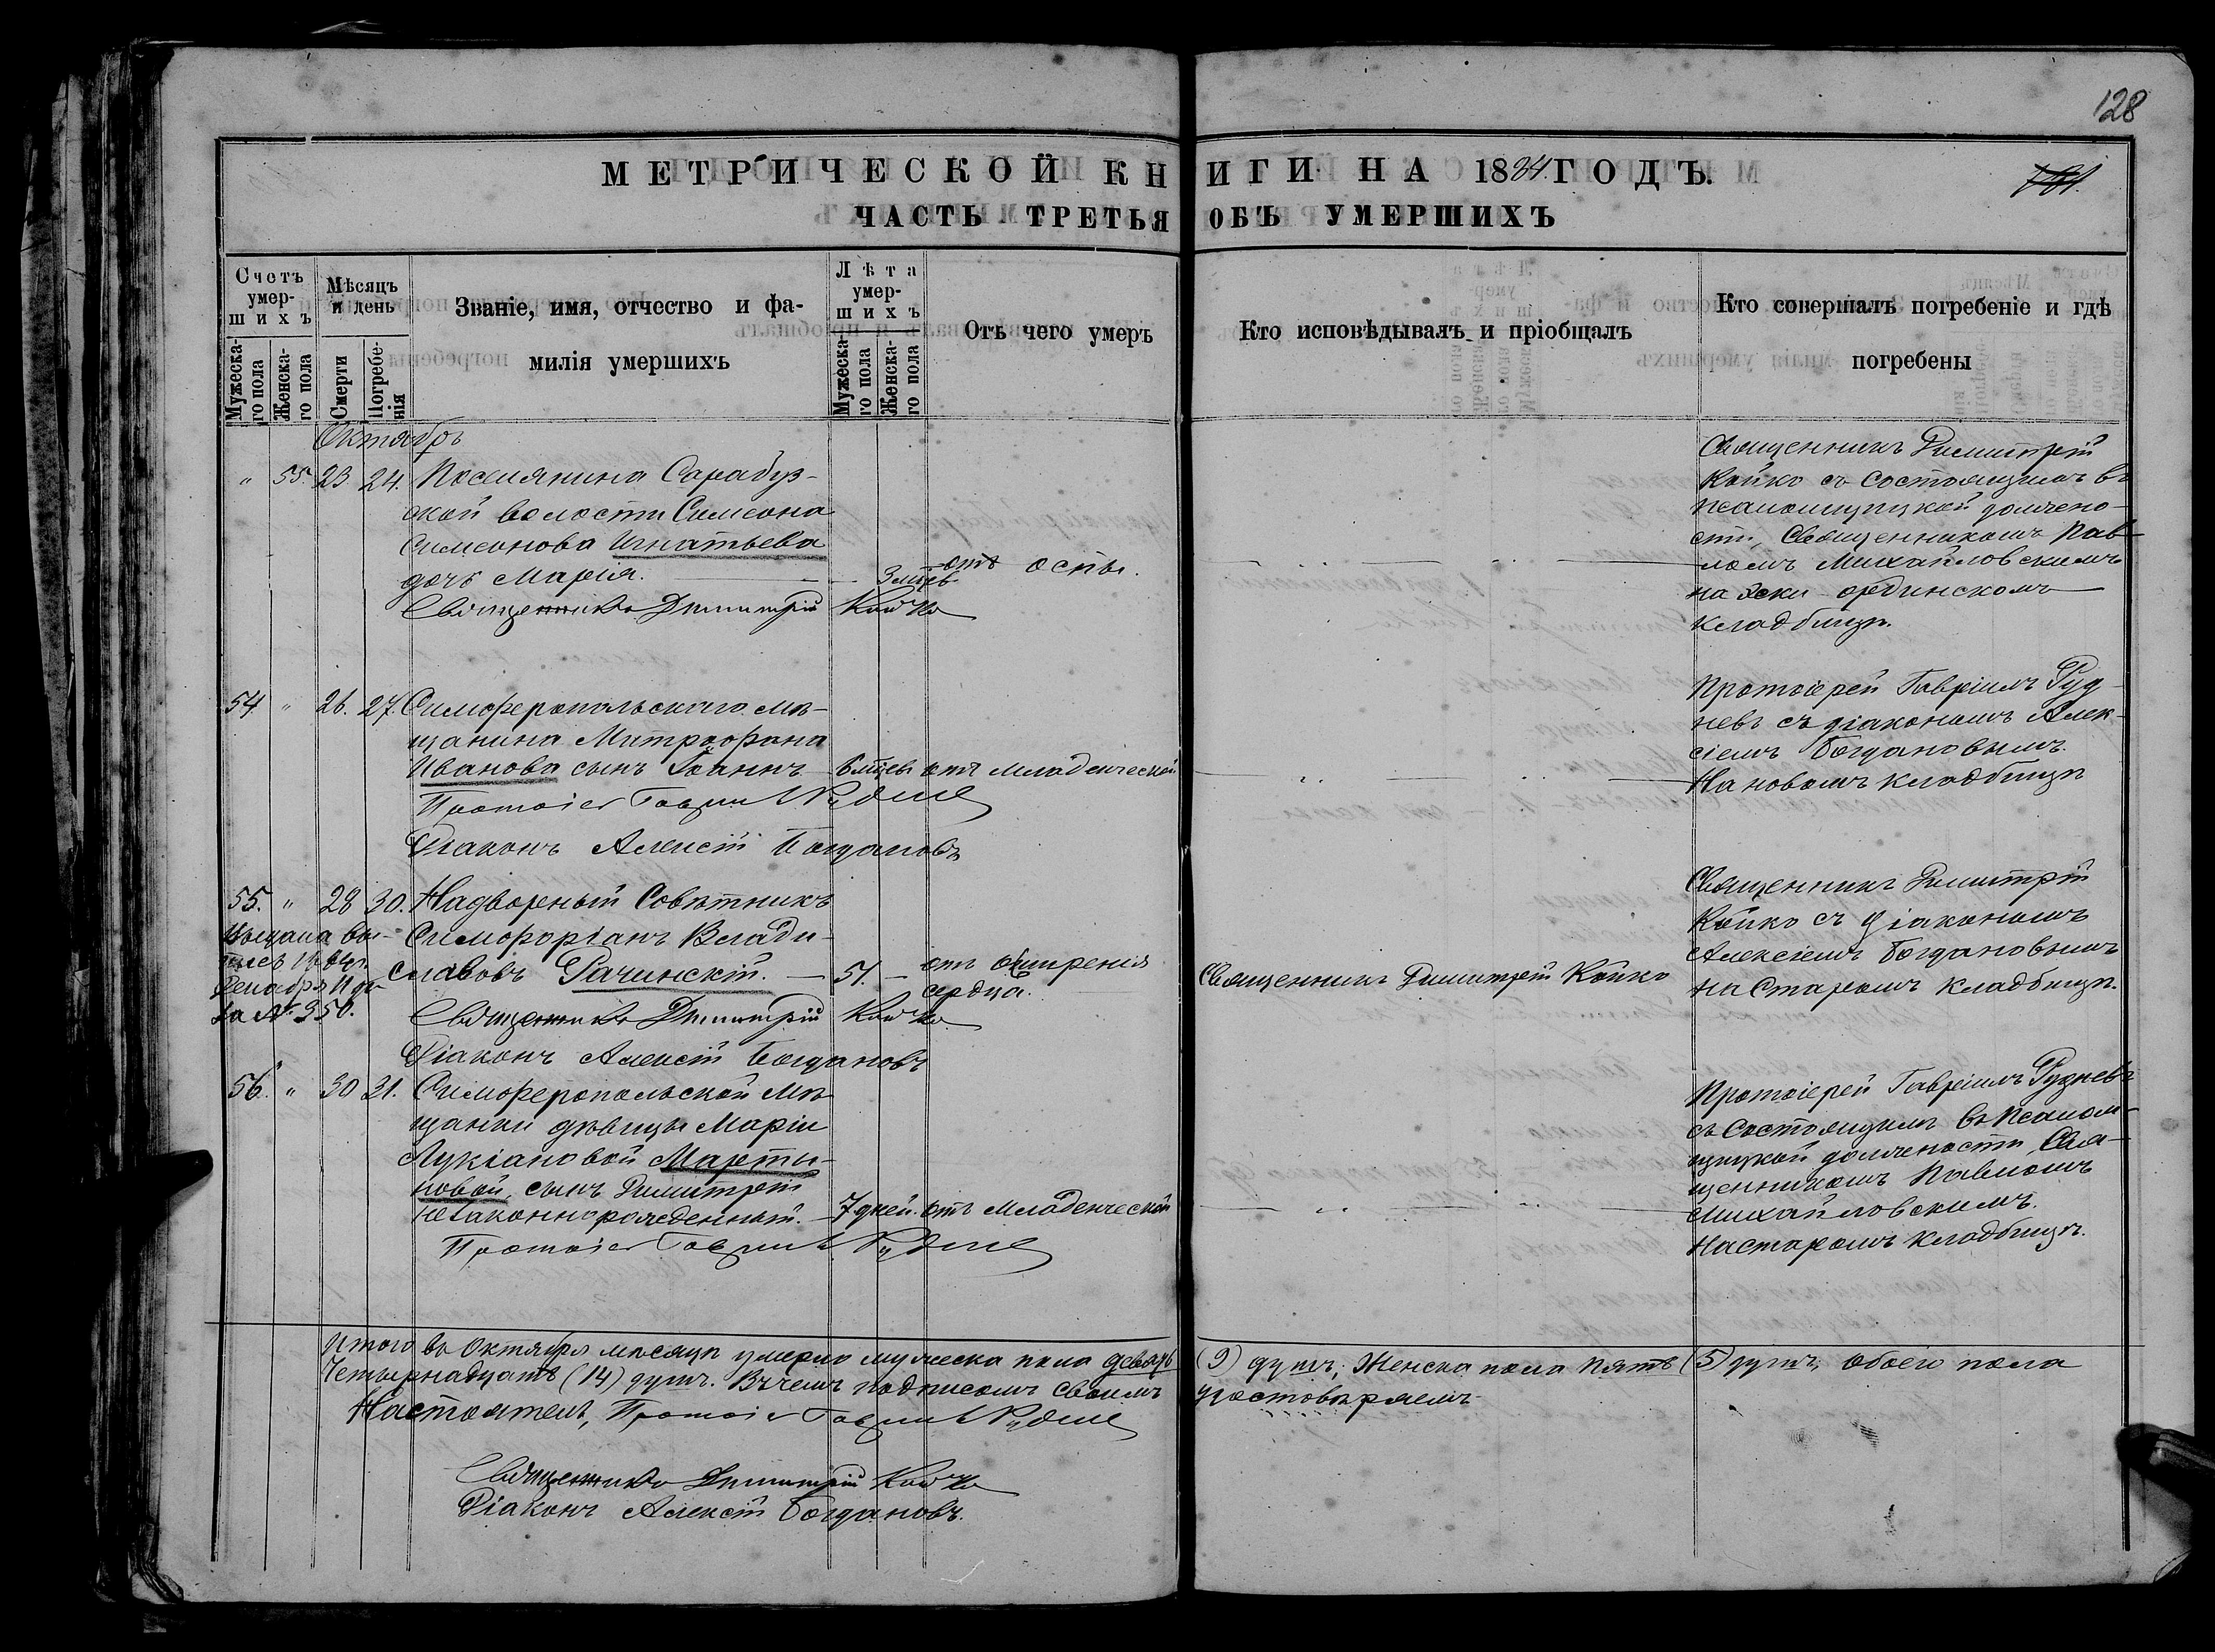 128
МЕТРИЧЕСКОЙ КНИГИ НА 1884 ГОДЪ.
ЧАСТЬ ТРЕТЬЯ ОБЪ УМЕРШИХЪ
Счетъ умер-
шихъ
Мужеска-
го пола
Женска-
го пола
Мѣсяцъ
и день
Смерти
Погребе-
нія
Званіе, имя, отчество и фа-
милія умершихъ
Лѣта
умер-
шихъ
Мужеска-
го пола
Женска-
го пола
Отъ чего умеръ
Кто исповѣдывалъ и пріобщалъ
Кто совершалъ погребеніе и гдѣ
погребены
Октябрь
" 55. 23 24. Поселянина Сарабуз-
ской волости Симеона
Симеонова Игнатьева
дочь Марія. 3 мѣсів отъ оспы.
Священникъ Димитрій Койко
Священникъ Димитрій
Койко съ состоящимъ въ
псаломщицкой должно-
сти, Священникомъ Пав-
ломъ Михайловскимъ
на Эски-ординскомъ
кладбищѣ.
54 " 26. 27. Симферопольскаго мѣ-
щанина Митрофана
Иванова сынъ Іоаннъ 6 мѣсцев отъ младенческой
Протоіер Гавріил Руднев
Діаконъ Алексій Богдановъ
Протоіерей Гавріилъ Руд-
невъ съ діакономъ Алек-
сіемъ Богдановымъ.
На новомъ кладбищѣ
55. " 28 30. Надворный Совѣтникъ
Симфоріанъ Влади-
славовъ Рачинскій. — 51. — отъ ожиренія
сердца.
Декабря 11 дня
за № 350.
Священникъ Димитрій Койко
Діаконъ Алексій Богдановъ
Священникъ Димитрій Койко
Священникъ Димитрій
Койко съ діакономъ
Алексіемъ Богдановымъ
на Старомъ кладбищѣ.
56. " 30 31. Симферопольской мѣ-
щанки дѣвицы Маріи
Лукіановой Марты-
новой, сынъ Димитрій
незаконнорожденный. — 7 дней. отъ младенческой
Протоіер Гавріил Руднев
Протоіерей Гавріилъ Рудневъ
съ состоящимъ въ псалом-
щицкой должности, Свя-
щенникомъ Павломъ
Михайловскимъ.
На старомъ кладбищѣ.
Итого въ Октябрѣ мѣсяцѣ умерло мужеска пола девять (9) душъ; Женска пола пять (5) душъ, обоего пола
Четырнадцать (14) душъ. Въ чемъ подписомъ своимъ удостовѣряемъ
Настоятель, Протоіер Гавріил Руднев
Священникъ Димитрій Койко
Діаконъ Алексій Богдановъ.